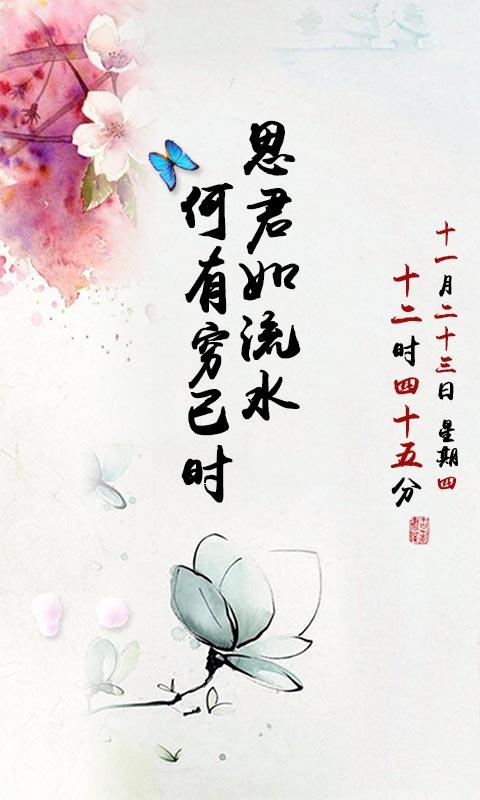 思君如流水
何有穷已时
十一月二十三日 星期四
十二时四十五分